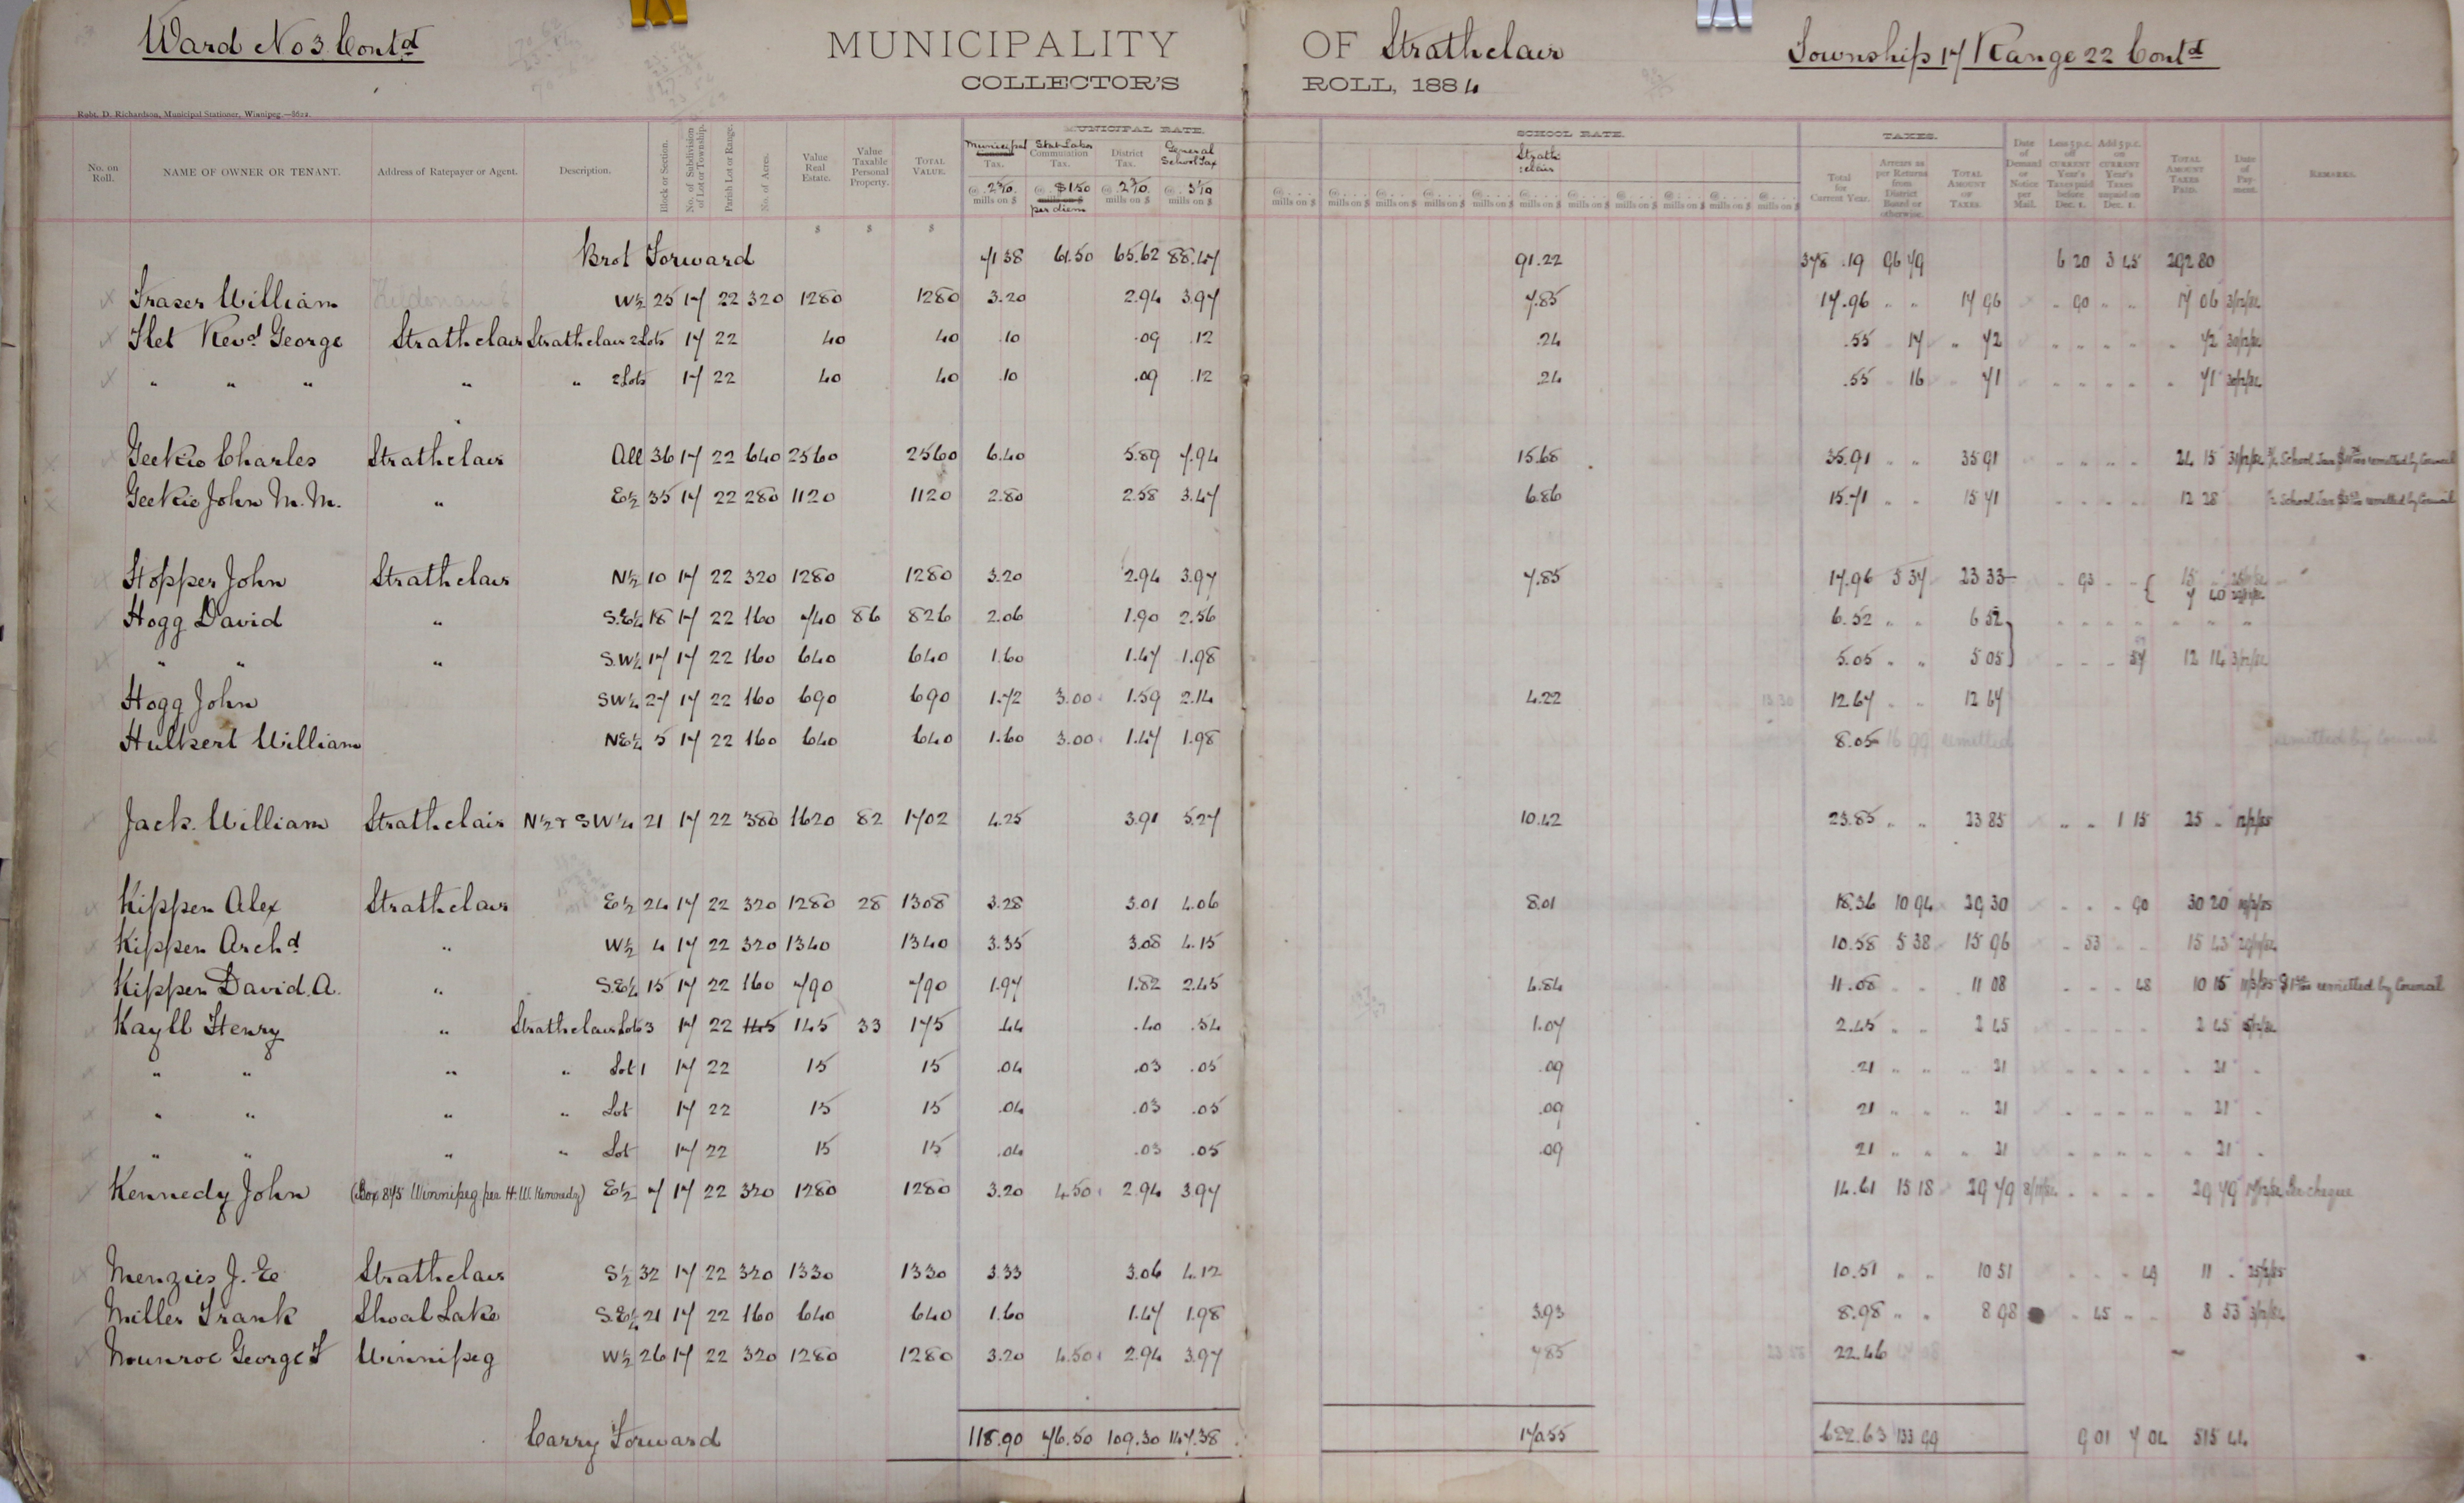 Ward No 3 Contd MUNICIPALITY OF Strathclair Township 17 Range 22 Contd
COLLECTOR'S ROLL, 1884
Robt. D. Richardson, Municipal Stationer, Winnipeg.—8622.
MUNICIPAL RATE. SCHOOL RATE. TAXES.
No. on Roll. NAME OF OWNER OR TENANT. Address of Ratepayer or Agent. Description. Block or Section. No. of Subdivision of Lot or Township. Parish Lot or Range. No. of Acres. Value Real Estate. Value Taxable Personal Property. TOTAL VALUE. Municipal Tax. Commutation Tax. District Tax. General School Tax Strathclair Total for Current Year. Arrears as per Returns from District Board or otherwise. TOTAL AMOUNT OF TAXES. Date of Demand or Notice per Mail. Less 5 p.c. off CURRENT Year's Taxes paid before Dec. 1. Add 5 p.c. on CURRENT Year's Taxes unpaid on Dec. 1. TOTAL AMOUNT TAXES PAID. Date of Payment. REMARKS.
@ 2 5/10 mills on $ @ $1.50 per diem @ 2 3/10 mills on $ @ 3 1/10 mills on $ @ mills on $ mills on $ mills on $ mills on $ mills on $ mills on $ mills on $ mills on $ mills on $ mills on $ mills on $
$ $ $
Brot Forward 71 38 61.50 65.62 88.47 91.22 378.19 96 79 6 20 3 45 292 80
Fraser William W½ 25 17 22 320 1280 1280 3.20 2.94 3.97 7.85 17.96 " " 17 96 " 90 " " 17 06 3/12/84
Flet Revd George Strathclair Strathclair 2 Lots 17 22 40 40 .10 .09 .12 .24 .55 17 " 72 " " " " " 72 30/12/84
" " " " " 2 Lots 17 22 40 40 .10 .09 .12 .24 .55 16 " 71 " " " " " 71 30/12/84
Geekie Charles Strathclair All 36 17 22 640 2560 2560 6.40 5.89 7.94 15.68 35.91 " " 35 91 " " " " 24 15 31/12/84 School Tax remitted by Council
Geekie John M. M. " E½ 35 17 22 280 1120 1120 2.80 2.58 3.47 6.86 15.71 " " 15 71 " " " " 12 28 ½ School Tax remitted by Council
Hopper John Strathclair N½ 10 17 22 320 1280 1280 3.20 2.94 3.97 7.85 17.96 5 37 23 33 " 93 " " { 15 "
7 40
Hogg David " S.E¼ 18 17 22 160 740 86 826 2.06 1.90 2.56 6.52 " " 6 52 " " " " " " "
" " " S.W¼ 17 17 22 160 640 640 1.60 1.47 1.98 5.05 " " 5 05 " " " 57 12 14 3/12/84
Hogg John SW¼ 27 17 22 160 690 690 1.72 3.00 1.59 2.14 4.22 12.67 " " 12 67
Hulbert William NE¼ 5 17 22 160 640 640 1.60 3.00 1.47 1.98 8.05 16 99 remitted remitted by Council
Jack William Strathclair N½ & SW¼ 21 17 22 380 1620 82 1702 4.25 3.91 5.27 10.42 23.85 " " 23 85 " " 1 15 25 " 12/2/85
Kippen Alex Strathclair E½ 24 17 22 320 1280 28 1308 3.28 3.01 4.06 8.01 18.36 10 94 29 30 " " " 90 30 20
Kippen Archd " W½ 4 17 22 320 1340 1340 3.35 3.08 4.15 10.58 5 38 15 96 " 53 " " 15 43
Kippen David A. " S.E¼ 15 17 22 160 790 790 1.97 1.82 2.45 4.84 11.08 " " 11 08 " " " 48 10 15 remitted by Council
Kayll Henry " Strathclair Lots 3 17 22 145 145 33 175 .44 .40 .54 1.07 2.45 " " 2 45 " " " " 2 45
" " " " Lot 1 17 22 15 15 .04 .03 .05 .09 .21 " " " 21 " " " " " 21 "
" " " " Lot 17 22 15 15 .04 .03 .05 .09 21 " " " 21 " " " " " 21 "
" " " " Lot 17 22 15 15 .04 .03 .05 .09 21 " " " 21 " " " " " 21 "
Kennedy John (Box 875 Winnipeg per H. W. Kennedy) E½ 7 17 22 320 1280 1280 3.20 4.50 2.94 3.97 14.61 15 18 29 79 " " " " 29 79 17/12/84 Per cheque
Menzies J. Strathclair S½ 32 17 22 320 1330 1330 3.33 3.06 4.12 10.51 " " 10 51 " " " 49 11 " 25/2/85
Miller Frank Shoal Lake S.E¼ 21 17 22 160 640 640 1.60 1.47 1.98 3.93 8.98 " " 8 98 " 45 " " 8 53 3/12/84
Mounroe George F Winnipeg W½ 26 17 22 320 1280 1280 3.20 4.50 2.94 3.97 7.85 22.46
Carry Forward 118.90 76.50 109.30 147.38 170.55 622.63 133 99 9 01 7 04 515 44